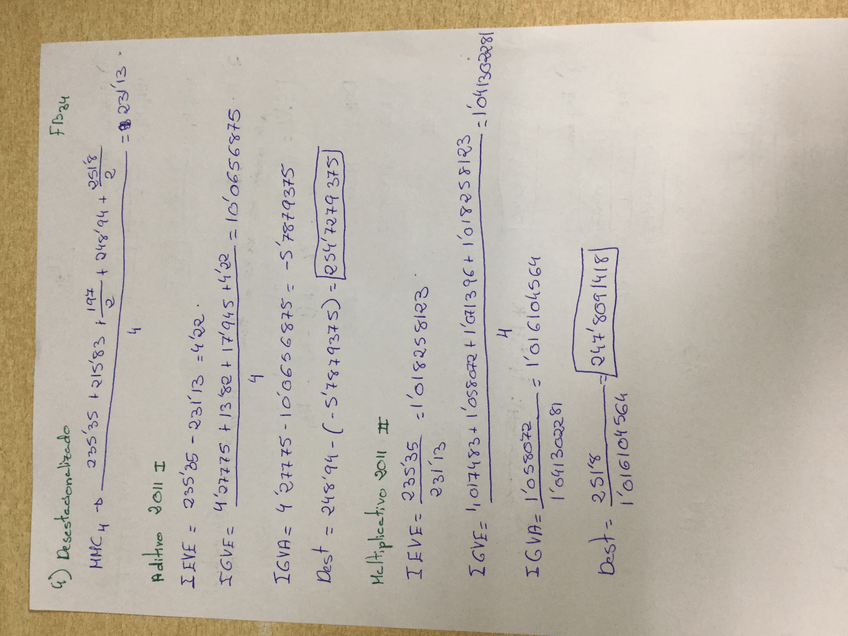 4) Desestacionalizado FIB34
MMC4 → (235'35 + 215'83 + 197/2 + 248'94 + 251'8/2) / 4 = 231'13.
Aditivo 2011 I
IEVE = 235'35 - 231'13 = 4'22.
IGVE = (4'27775 + 13'82 + 17'945 + 4'22) / 4 = 10'0656875
IGVA = 4'27775 - 10'0656875 = -5'7879375
Dest = 248'94 - (-5'7879375) = 254'7279375
Multiplicativo 2011 II
IEVE = 235'35 / 231'13 = 1'018258123
IGVE = (1'017483 + 1'058072 + 1'071396 + 1'018258123) / 4 = 1'041302281
IGVA = 1'058072 / 1'041302281 = 1'016104564
Dest = 251'8 / 1'016104564 = 247'8091418